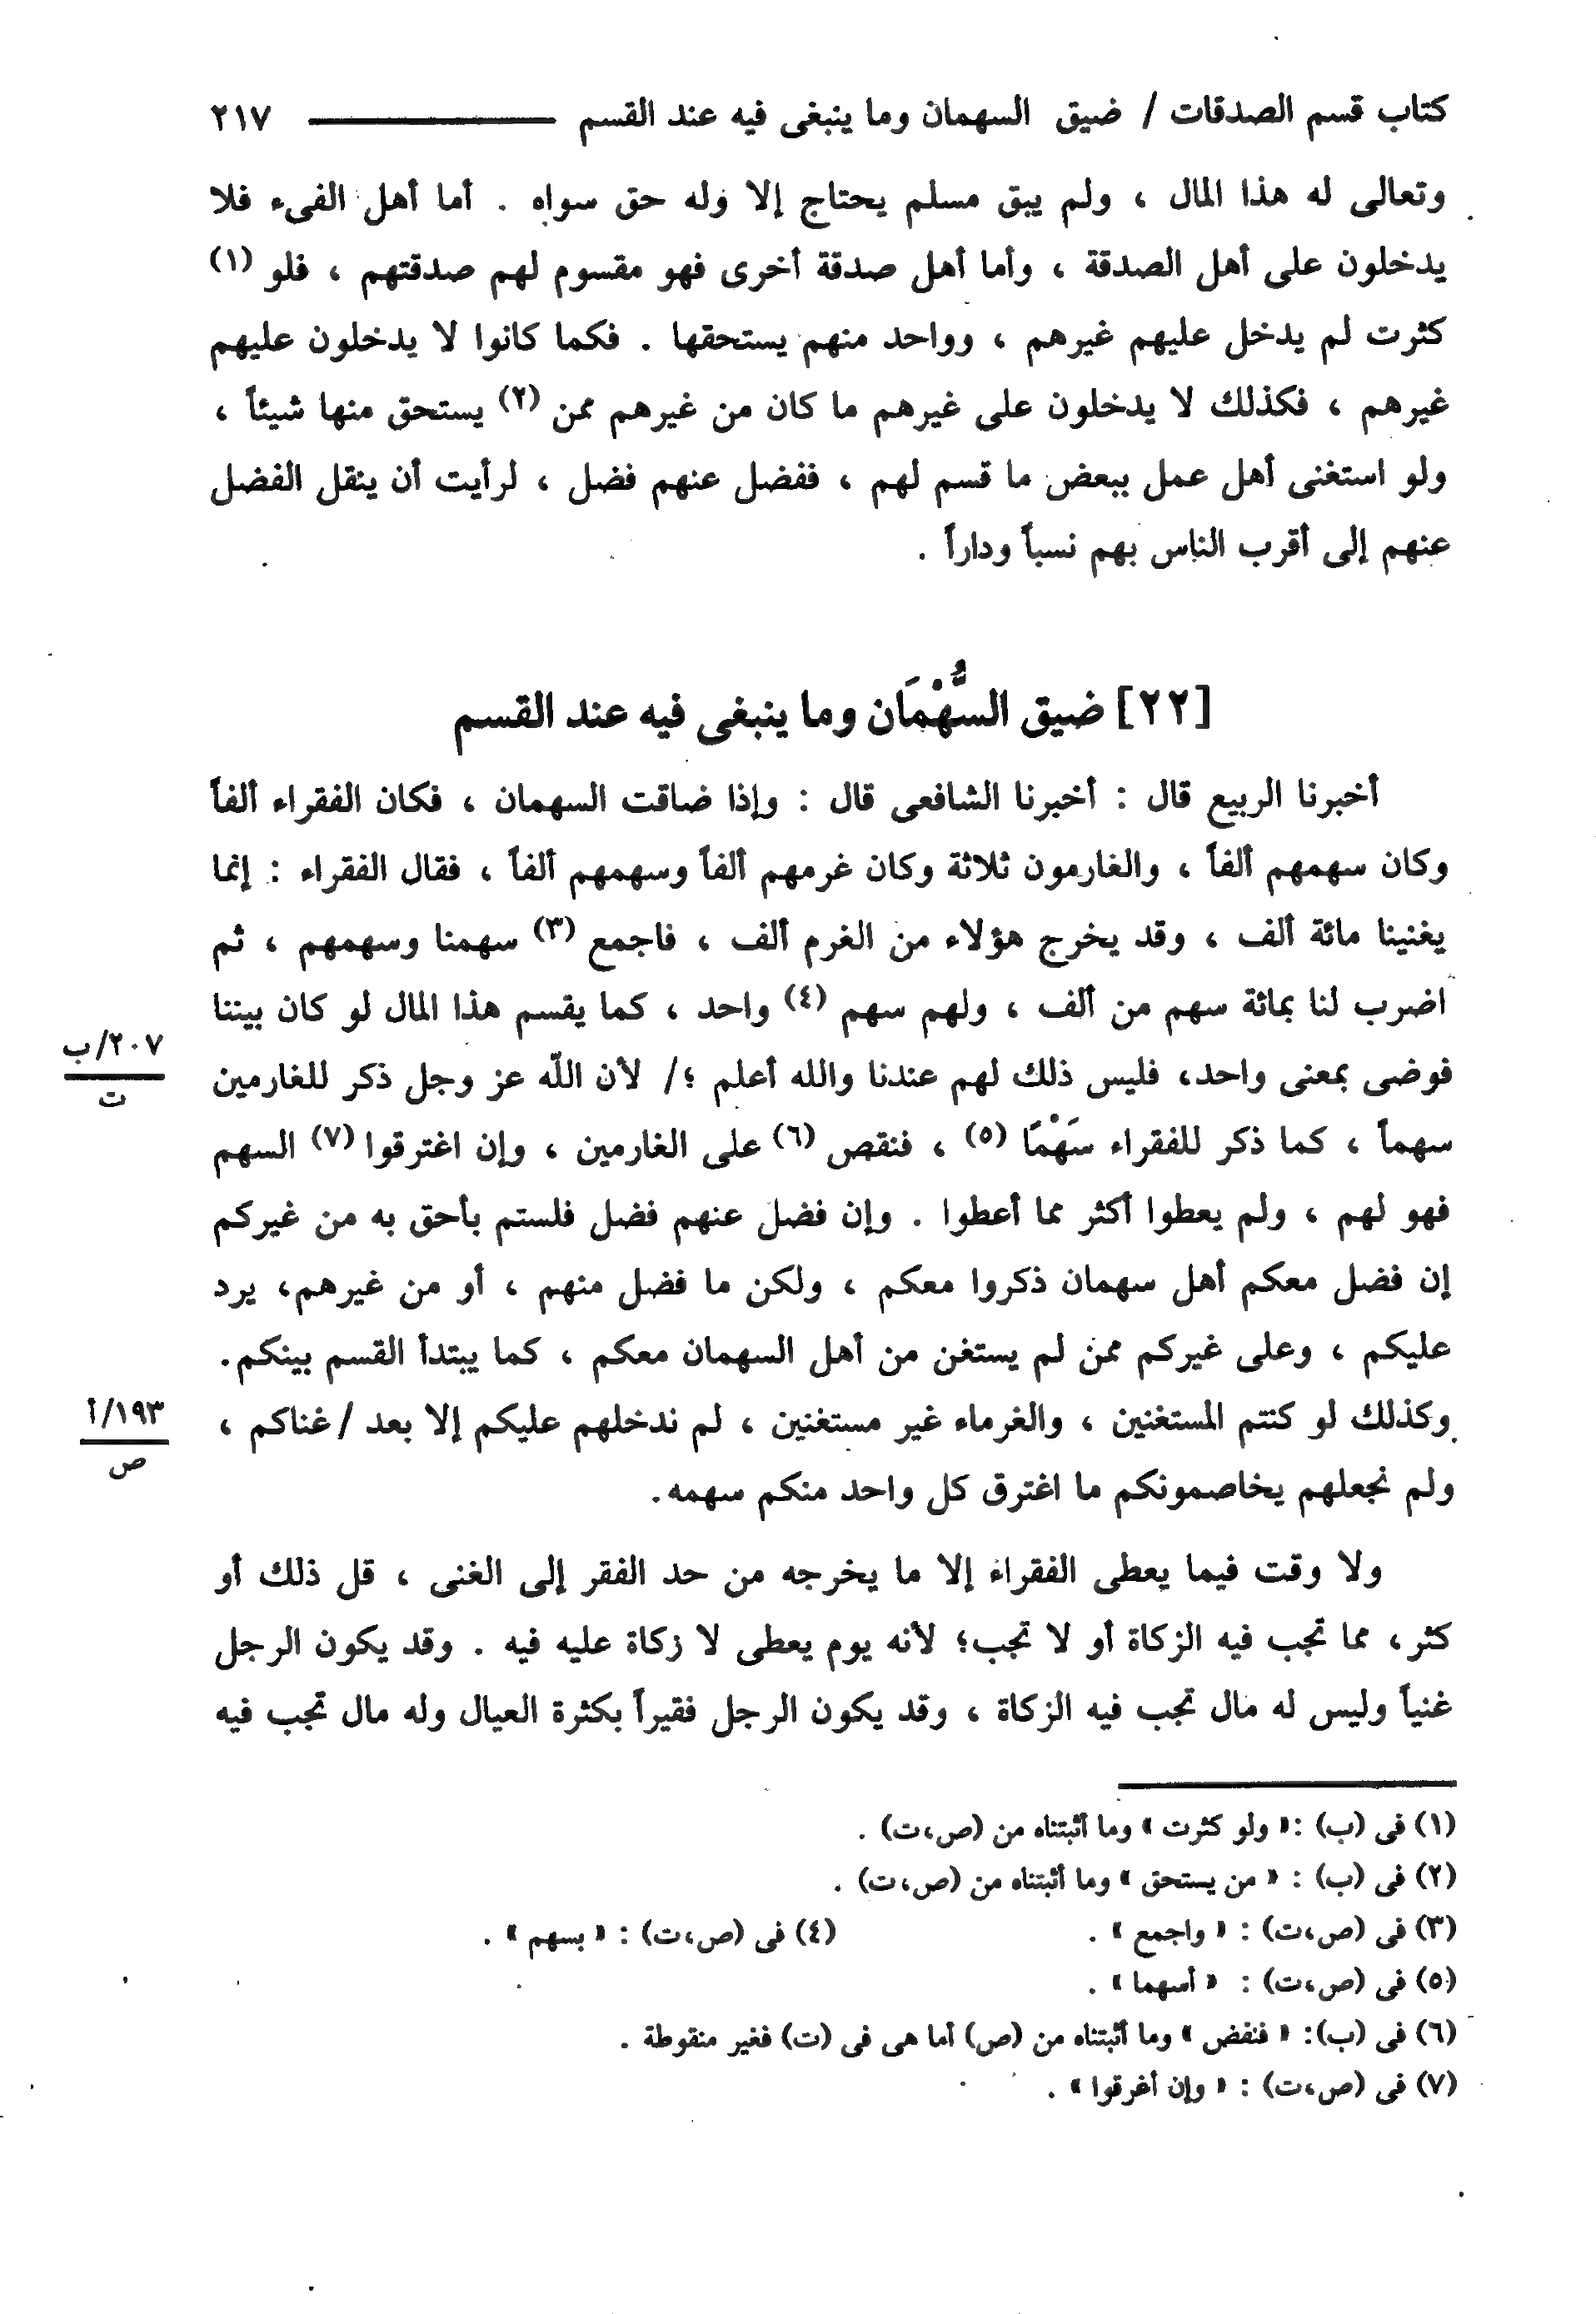 كتاب قسم الصدقات / ضيق السهمان وما ينبغى فيه عند القسم ٢١٧
وتعالى له هذا المال ، ولم يبق مسلم يحتاج إلا وله حق سواه . أما أهل الفىء فلا
يدخلون على أهل الصدقة ، وأما أهل صدقة أخرى فهو مقسوم لهم صدقتهم ، فلو (١)
كثرت لم يدخل عليهم غيرهم ، وواحد منهم يستحقها . فكما كانوا لا يدخلون عليهم
غيرهم ، فكذلك لا يدخلون على غيرهم ما كان من غيرهم ممن (٢) يستحق منها شيئاً ،
ولو استغنى أهل عمل ببعض ما قسم لهم ، ففضل عنهم فضل ، لرأيت أن ينقل الفضل
عنهم إلى أقرب الناس بهم نسباً وداراً .
[٢٢] ضيق السُّهْمَان وما ينبغى فيه عند القسم
أخبرنا الربيع قال : أخبرنا الشافعى قال : وإذا ضاقت السهمان ، فكان الفقراء ألفاً
وكان سهمهم ألفاً ، والغارمون ثلاثة وكان غرمهم ألفاً وسهمهم ألفاً ، فقال الفقراء : إنما
يغنينا مائة ألف ، وقد يخرج هؤلاء من الغرم ألف ، فاجمع (٣) سهمنا وسهمهم ، ثم
اضرب لنا بمائة سهم من ألف ، ولهم سهم (٤) واحد ، كما يقسم هذا المال لو كان بيننا
فوضى بمعنى واحد، فليس ذلك لهم عندنا والله أعلم ؛/ لأن اللّه عز وجل ذكر للغارمين
٢٠٧/ب
ت
سهماً ، كما ذكر للفقراء سَهْمًا (٥) ، فنقص (٦) على الغارمين ، وإن اغترقوا (٧) السهم
فهو لهم ، ولم يعطوا أكثر مما أعطوا . وإن فضل عنهم فضل فلستم بأحق به من غيركم
إن فضل معكم أهل سهمان ذكروا معكم ، ولكن ما فضل منهم ، أو من غيرهم، يرد
عليكم ، وعلى غيركم ممن لم يستغن من أهل السهمان معكم ، كما يبتدأ القسم بينكم.
وكذلك لو كنتم المستغنين ، والغرماء غير مستغنين ، لم ندخلهم عليكم إلا بعد /غناكم ،
١٩٣/أ
ص
ولم نجعلهم يخاصمونكم ما اغترق كل واحد منكم سهمه.
ولا وقت فيما يعطى الفقراء إلا ما يخرجه من حد الفقر إلى الغنى ، قل ذلك أو
كثر، مما تجب فيه الزكاة أو لا تجب؛ لأنه يوم يعطى لا زكاة عليه فيه . وقد يكون الرجل
غنياً وليس له مال تجب فيه الزكاة ، وقد يكون الرجل فقيراً بكثرة العيال وله مال تجب فيه
(١) فى (ب) :« ولو كثرت » وما أثبتناه من (ص،ت) .
(٢) فى (ب) : « من يستحق » وما أثبتناه من (ص،ت) .
(٣) فى (ص،ت) : « واجمع » . (٤) فى (ص،ت) : « بسهم » .
(٥) فى (ص،ت) : « أسهما » .
(٦) فى (ب): « فنفض » وما أثبتناه من (ص) أما هى فى (ت) فغير منقوطة .
(٧) فى (ص،ت) : « وإن أغرقوا » .